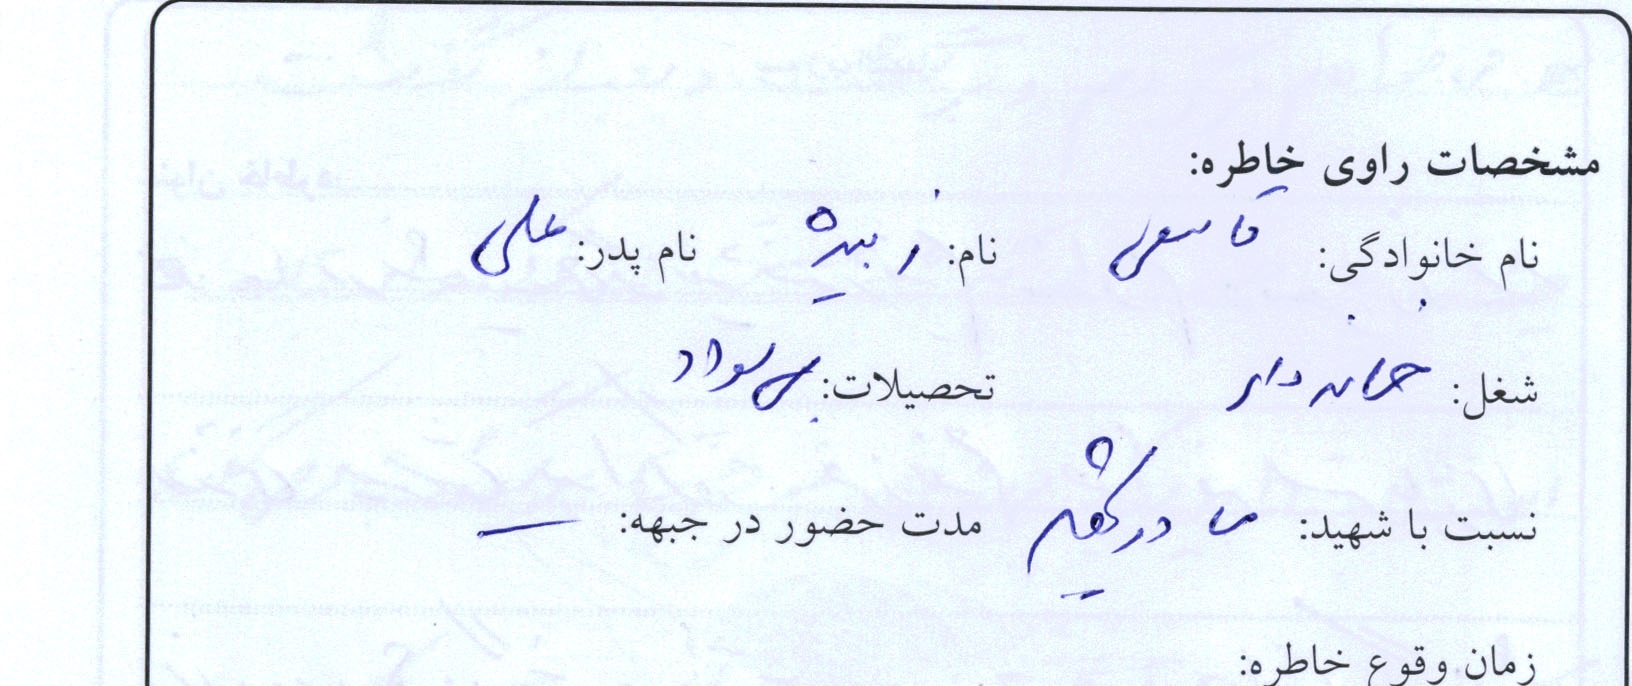 مشخصات راوی خاطره:
نام خانوادگی: قاسمی نام: زبیده نام پدر: علی
شغل: خانه دار تحصیلات: بی سواد
نسبت با شهید: مادر شهید مدت حضور در جبهه: —
زمان وقوع خاطره: